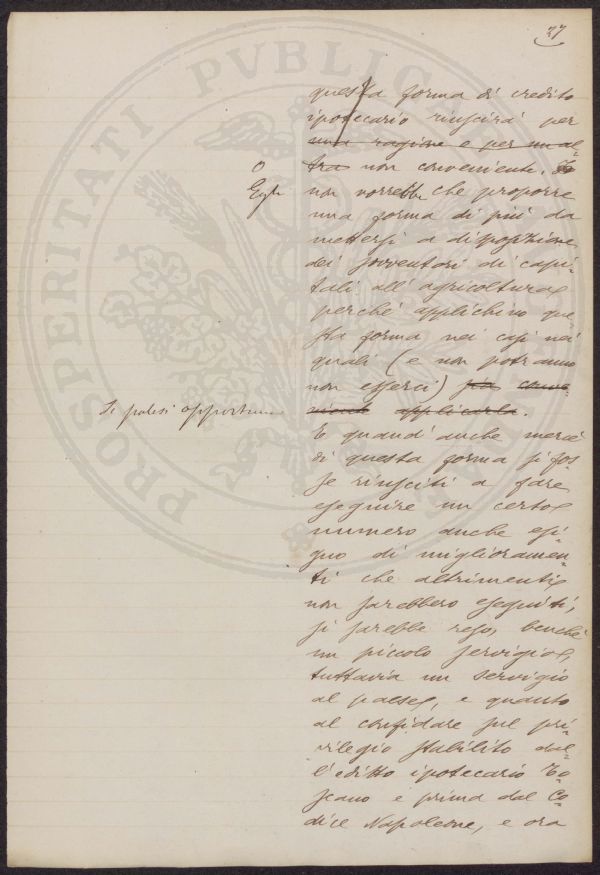 27
questa forma di credito
ipotecario riuscirà per
una ragione e per un'al-
tra non conveniente.
o
Egli
non vorrebbe che proporre
una forma di più da
mettersi a disposizione
dei sovventori di capi-
tali all'agricoltura
perché applichino que
sta forma nei casi nei
quali (e non potranno
non esserci) sia conve-
niente applicarla.
si palesi opportuna
E quand'anche mercè
di questa forma si fos-
se riusciti a fare
eseguire un certo
numero anche esi-
guo di miglioramen-
ti che altrimenti
non sarebbero eseguiti,
si sarebbe reso, benchè
un piccolo servigio,
tuttavia un servigio
al paese, e quanto
al confidare sul pri-
vilegio stabilito dal-
l'editto ipotecario To-
scano e prima dal Co-
dice Napoleone, e ora
PROSPERITATI PVBLICAE